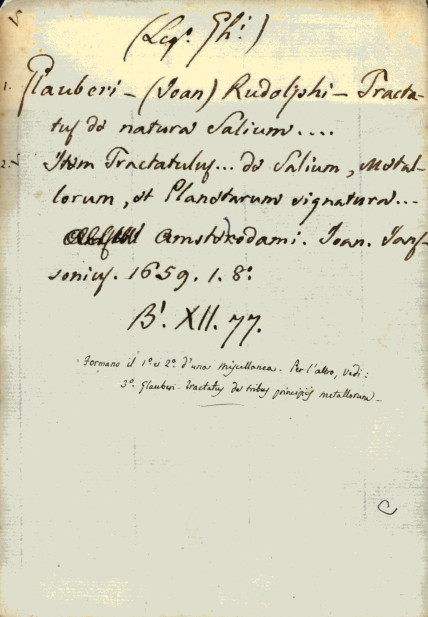 (Leg. Ghi.)
1. Glauberi - (Joan) Rudolphi - Tracta-
tus de natura Salium....
2. Item Tractatulus... de Salium, Metal-
lorum, et Planetarum signatura...
Amsterodami. Joan. Jans-
sonius. 1659. 1. 8º
B. XII. 77.
Formano il 1º e 2º d'una miscellanea. Per l'altro, vedi:
3º. Glauberi - Tractatus de tribus principiis metallorum -
C